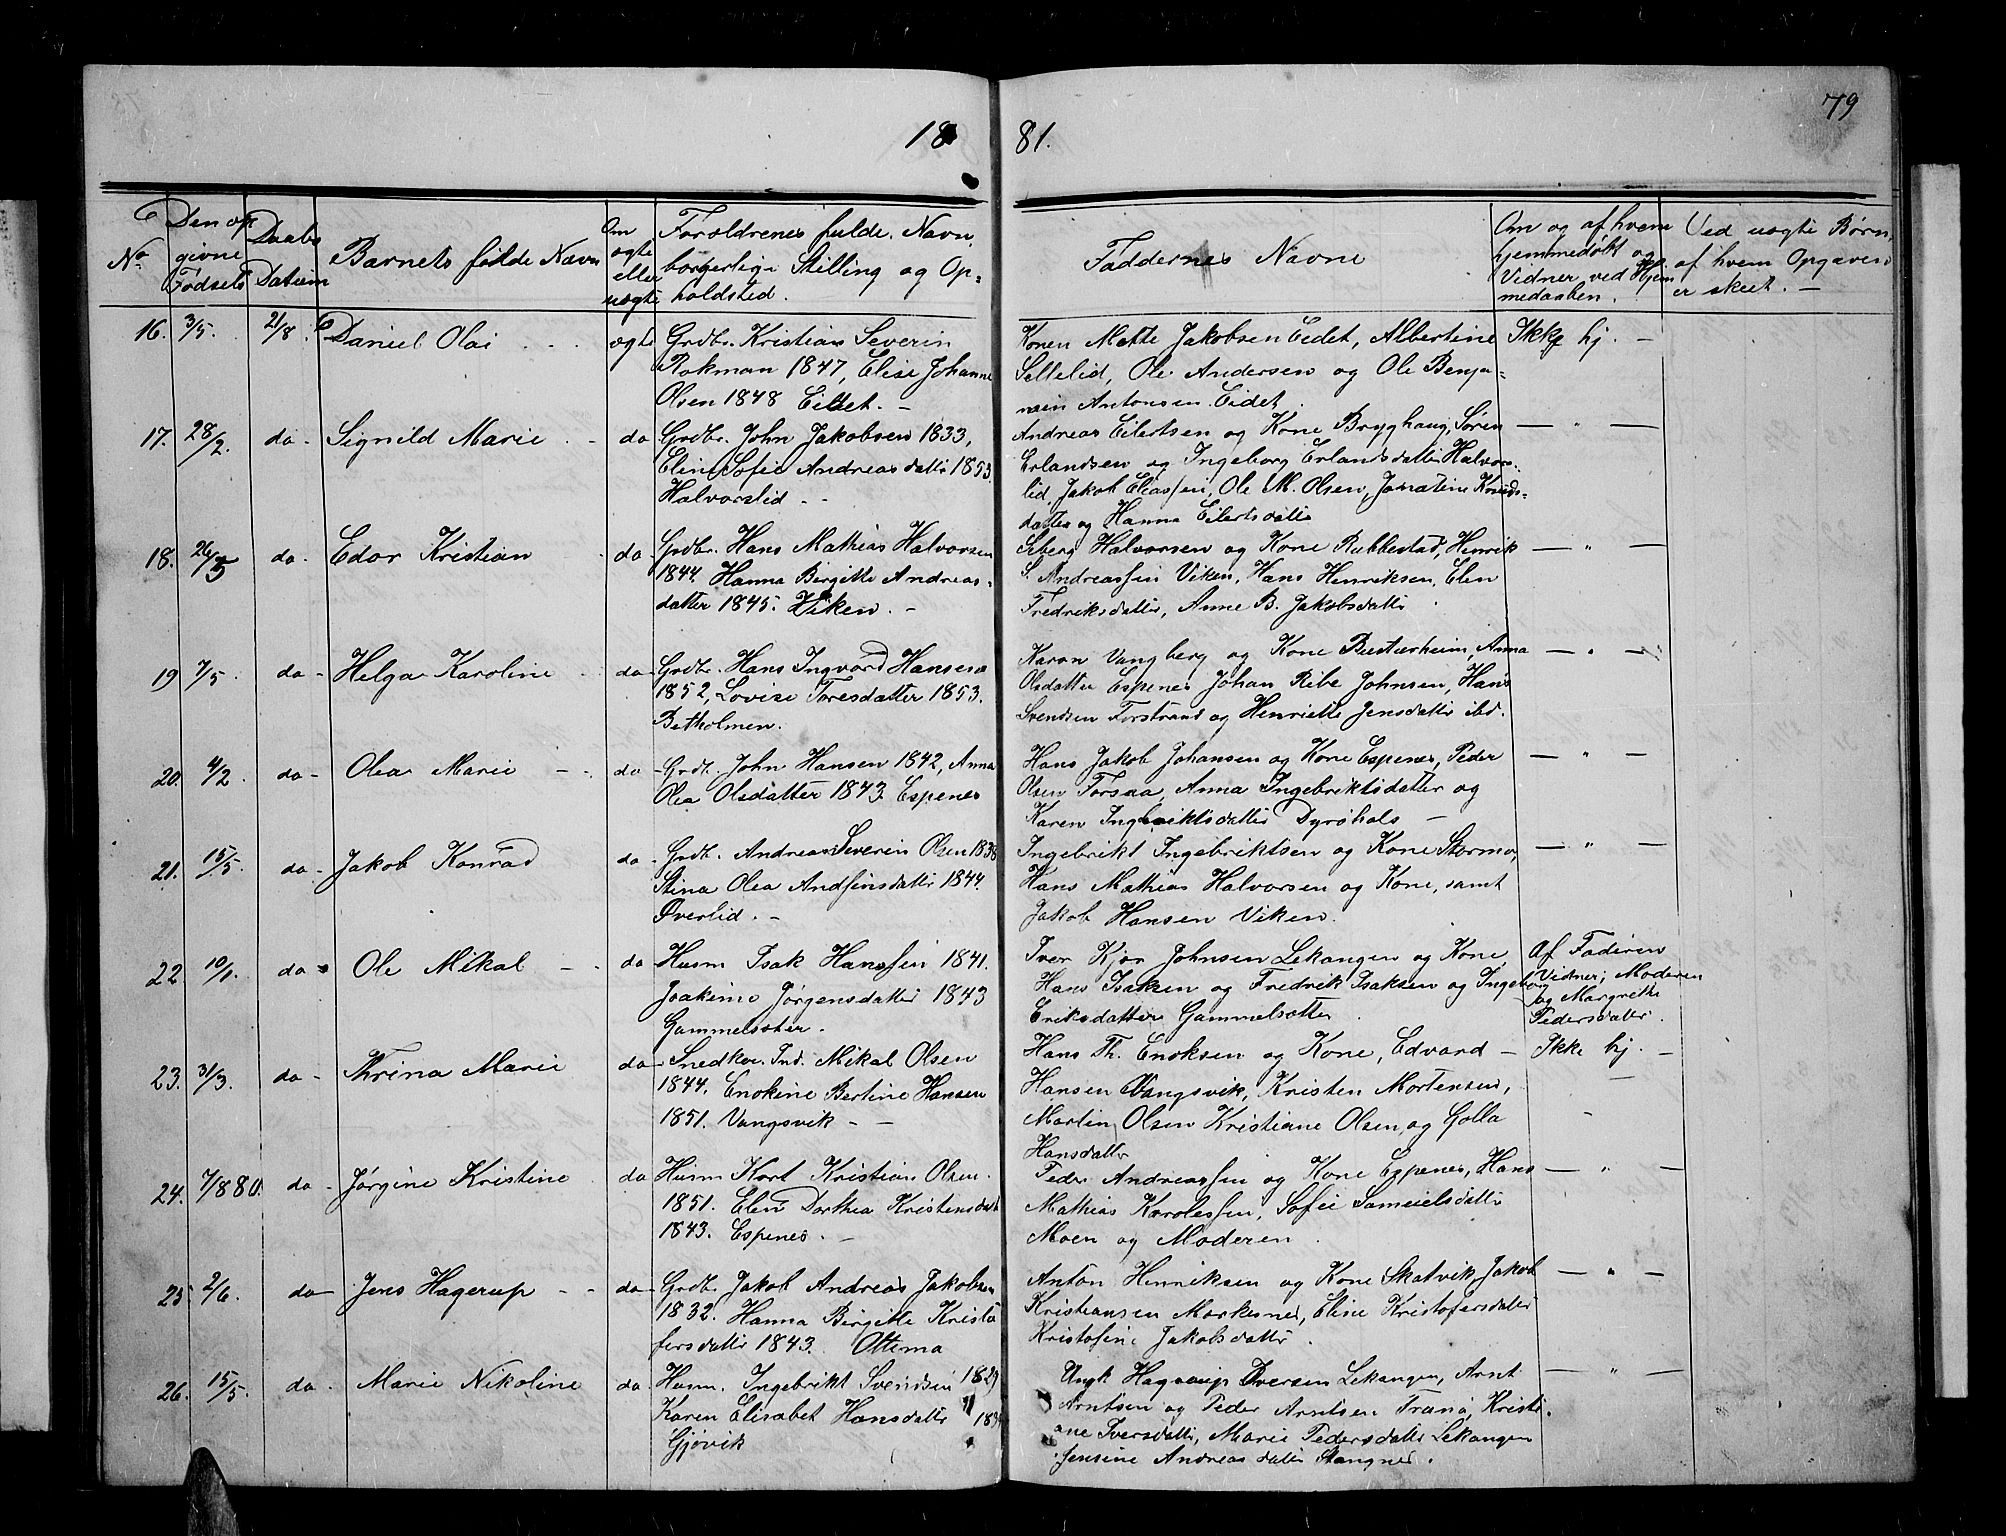 79
18 81.
No
Den opgivne Fødsels
Daabs Datum
Barnets fulde Navn
Om ægte eller uægte
Forældrenes fulde Navn, borgerlige Stilling og Opholdsted.
Faddernes Navne
Om og af hvem hjemmedøbt og Vidner ved Hjemmedaaben.
Ved uægte Børn, af hvem Opgaven er skeet. —
16. 3/5. 21/8. Daniel Olai ægte
Grdbr. Kristian Severin
Rokman 1847, Elise Johanne
Olsen 1848 Eidet. —
Konen Mette Jakobsen Eidet, Albertine
Sellelid, Ole Andersen og Ole Benja-
min Antonsen Eidet.
Ikke hj. —
17. 28/2. do - Signild Marie do
Grdbr. John Jakobsen 1833,
Eline Sofie Andreasdatter 1853
Halvorslid - -
Andreas Eilertsen og Kone Bryghaug, Søren
Erlandsen og Ingeborg Erlandsdatter Halvors-
lid, Jakob Eliassen, Ole M. Olsen, Jonatine Knuds-
datter og Hanna Eilertsdatter
— " —
18. 26/3 do - Edor Kristian do
Grdbr. Hans Mathias Halvorsen
1844. Hanna Birgitte Andreas-
datter 1845. Viken. —
Seberg Halvorsen og Kone Rubbestad, Henrik
S. Andreassen Viken, Hans Henriksen, Elen
Fredriksdatter, Anne B. Jakobsdatter
— " —
19 7/5. do - Helga Karoline do
Grdbr. Hans Ingvard Hansen
1852, Lovise Toresdatter 1853.
Betholmen.
Karon Vangberg og Kone Anna
Olsdatter Espenes Johan Ribe Johnsen, Hans
Svendsen Forstrand og Henriette Jensdatter ibd.
— " —
20. 4/2. do - Olea Marie - - do
Grdb. John Hansen 1842, Anna
Olea Olsdatter 1843 Espenes
Hans Jakob Johansen og Kone Espenes, Peder
Olsen Forsaa, Anna Ingebriktsdatter og
Karen Ingebriktsdatter Dyrøhals —
— " —
21. 15/5. do - Jakob Konrad do
Grdb. Andreas Severin Olsen 1838
Stina Olea Andfinsdatter 1844.
Øverlid. —
Ingebrikt Ingebriktsen og Kone Stormo,
Hans Mathias Halvorsen og Kone, samt
Jakob Hansen Viken.
— " —
22 10/1. do Ole Mikal - do
Husm Isak Hanssen 1841.
Joakime Jørgensdatter 1843
Gammelsæter.
Iver Kjær Johnsen Lekangen og Kone,
Hans Isaksen og Fredrik Isaksen og Ingeborg
Eriksdatter Gammelsætter.
Af Faderen
Vidner; Moderen
og Margrethe
Pedersdatter.
23. 31/3. do - Thrina Marie do
Snedker. Ind. Mikal Olsen
1844. Enokine Bertine Hansen
1851. Vangsvik - —
Hans Th. Enoksen og Kone, Edvard —
Hansen Vangsvik, Kristen Mortensen,
Martin Olsen Kristiane Olsen, og Golla
Hansdatter
Ikke hj. —
24. 7/8 80. do - Jørgine Kristine do
Husm Kort Kristian Olsen.
1851. Elen Dorthea Kristensdatt
1843. Espenes. —
Peder Andreassen og Kone Espenes, Hans
Mathias Karolessen, Sofie Samuelsdatter
Moen og Moderen.
— " —
25 2/6. do - Jens Hagerup - - do
Grdb. Jakob Andreas Jakobsen
1832. Hanna Birgitte Kristo
fersdatter 1843. Ottema
Anton Henriksen og Kone Skatvik, Jakob
Kristiansen Elise Kristofersdatter
Kristofine Jakobsdatter.
— " —
26. 15/5. do - Marie Nikoline do
Husm. Ingebrikt Svendsen 1829
Karen Elisabet Hansdatter
Gjøvik
Ungk Hagerup Iversen Lekangen, Arnt
Arntsen og Peder Arntsen Tranø, Kristi-
ane Iversdatter, Marie Pedersdatter Lekangen
Jensine Andreasdatter Stangnes.
— " —